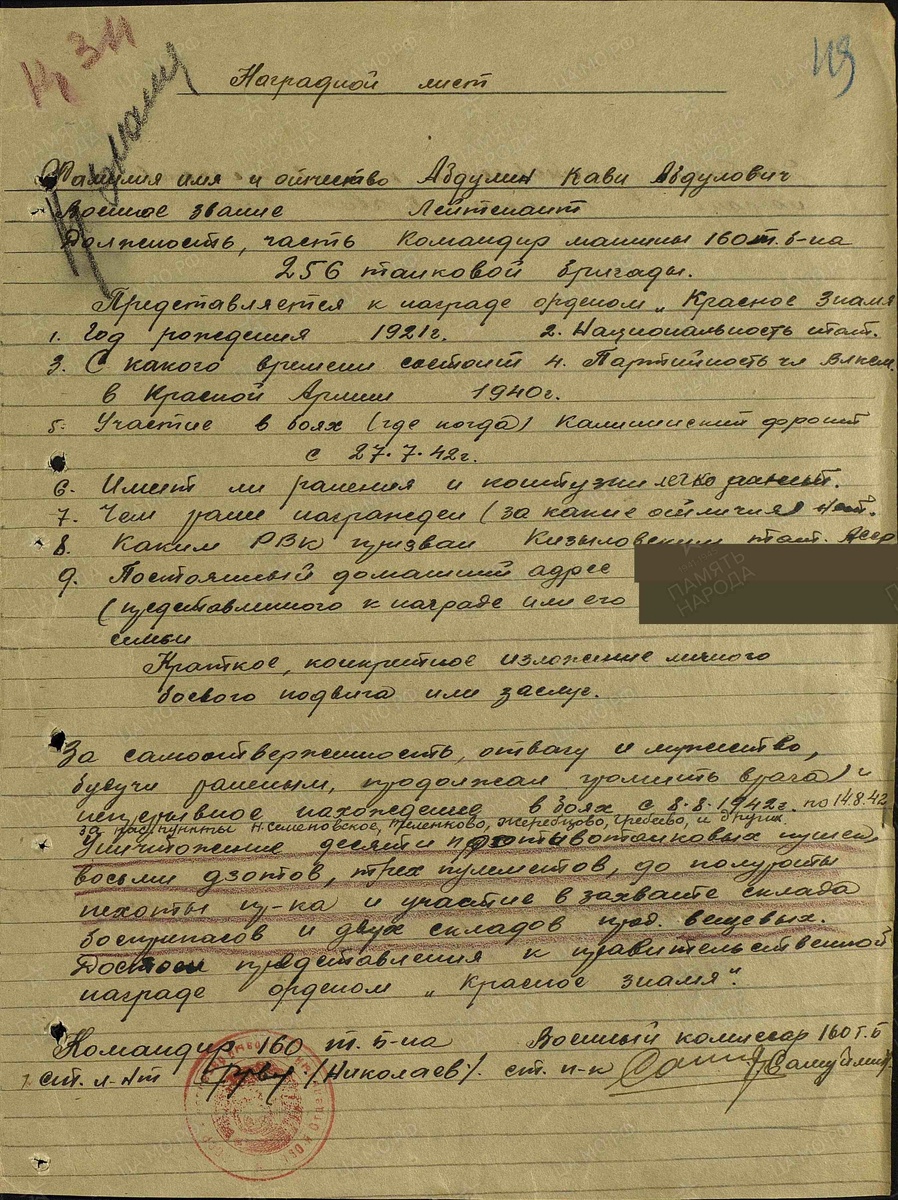 Кр Зн
113
Наградной лист
Фамилия имя и отчество Абдулин Кави Абдулович
Военное звание Лейтенант
Должность, часть Командир машины 160 т. б-на
256 танковой бригады.
Представляется к награде орденом „Красное Знамя
1. Год рождения 1921г. 2. Национальность тат.
3. С какого времени состоит 4. Партийность чл ВЛКСМ.
в Красной Армии 1940г.
5. Участие в боях (где когда) Калининский фронт
с 27.7.42г.
6. Имеет ли ранения и контузии легко ранен.
7. Чем ранее награжден (за какие отличия) нет.
8. Каким РВК призван Кизыловским тат. АССР
9. Постоянный домашний адрес
(представленного к награде или его
семьи
Краткое, конкретное изложение личного
боевого подвига или заслуг.
За самоотверженность, отвагу и мужество,
будучи раненым, продолжал громить врага) и
непрерывное нахождение в боях с 8.8.1942г. по 14.8.42
за нас. пункты Н. Семеновское, Теленково, Жеребцово, Гребево, и другие.
Уничтожение десяти противотанковых пушек,
восьми дзотов, трех пулеметов, до полуроты
пехоты пр-ка и участие в захвате склада
боеприпасов и двух складов прод. вещевых.
Достоин представления к правительственной
награде орденом „Красное знамя".
Командир 160 т. б-на Военный комиссар 160 т. б
ст. л-нт (Николаев). ст. п-к (Самуйлик).
ПАМЯТЬ
НАРОДА